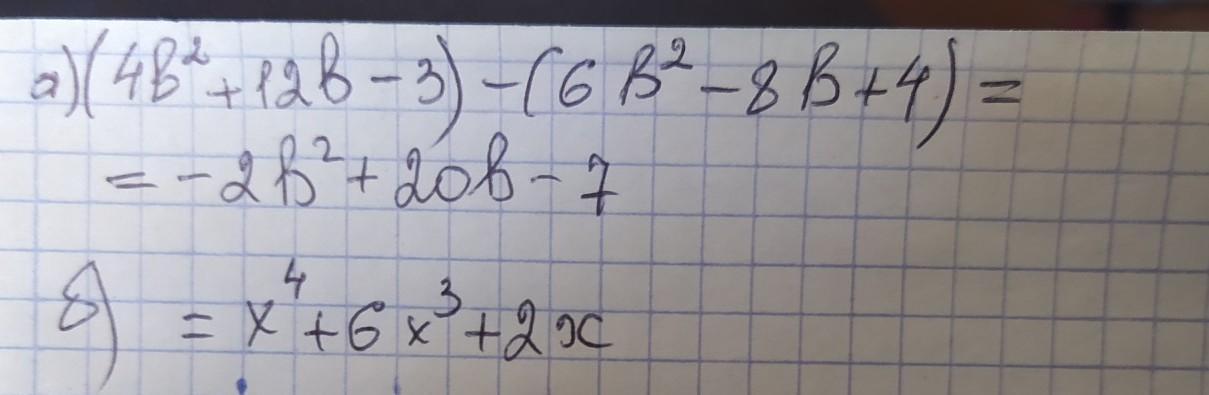 а) (4b² + 12b - 3) - (6b² - 8b + 4) =
= -2b² + 20b - 7
б) = x⁴ + 6x³ + 2x